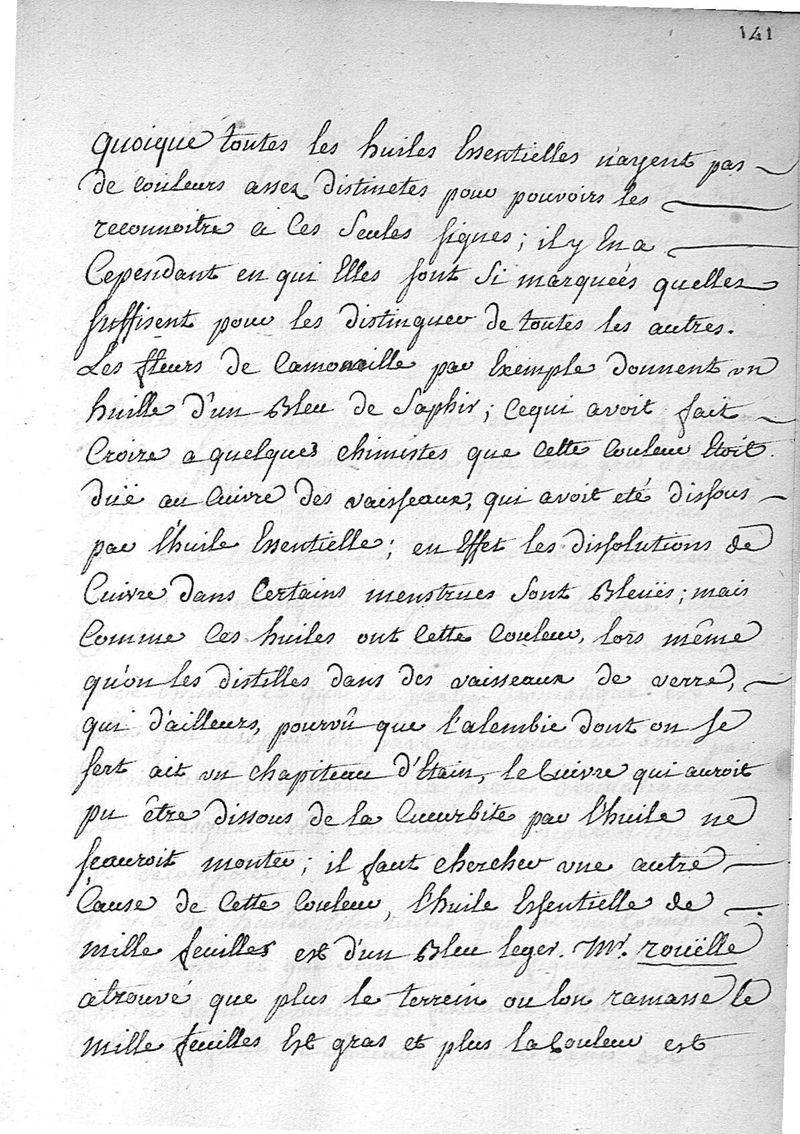 141
quoique toutes les huiles Essentielles n'ayent pas
de couleurs assez distinctes pour pouvoirs les
reconnoitre a Ces Seules signes; il y En a
Cependant en qui Elles sont Si marqueés quelles
suffisent pour les distinguer de toutes les autres.
Les fleurs de Camomille par Exemple donnent un
huille d'un Bleu de Saphir; Cequi avoit fait
Croire a quelques chimistes que Cette Couleur Etoit
duë au Cuivre des vaisseaux, qui avoit eté dissous
par l'huile Essentielle; en Effet les dissolutions de
Cuivre dans Certains menstrues Sont Bleuës; mais
Comme Ces huiles ont Cette Couleur, lors même
qu'on les distilles dans des vaisseaux de verre,
qui d'ailleurs, pourvû que l'alembic dont on se
sert ait un chapiteau d'Etain, le Cuivre qui auroit
pu être dissous de la Cucurbite par l'huile ne
sçauroit monter; il faut chercher une autre
Cause de Cette Couleur, l'huile Essentielle de
mille feuilles est d'un Bleu leger. Mr. rouëlle
a trouvé que plus le terrein ou lon ramasse le
mille feuilles Est gras et plus la Couleur est